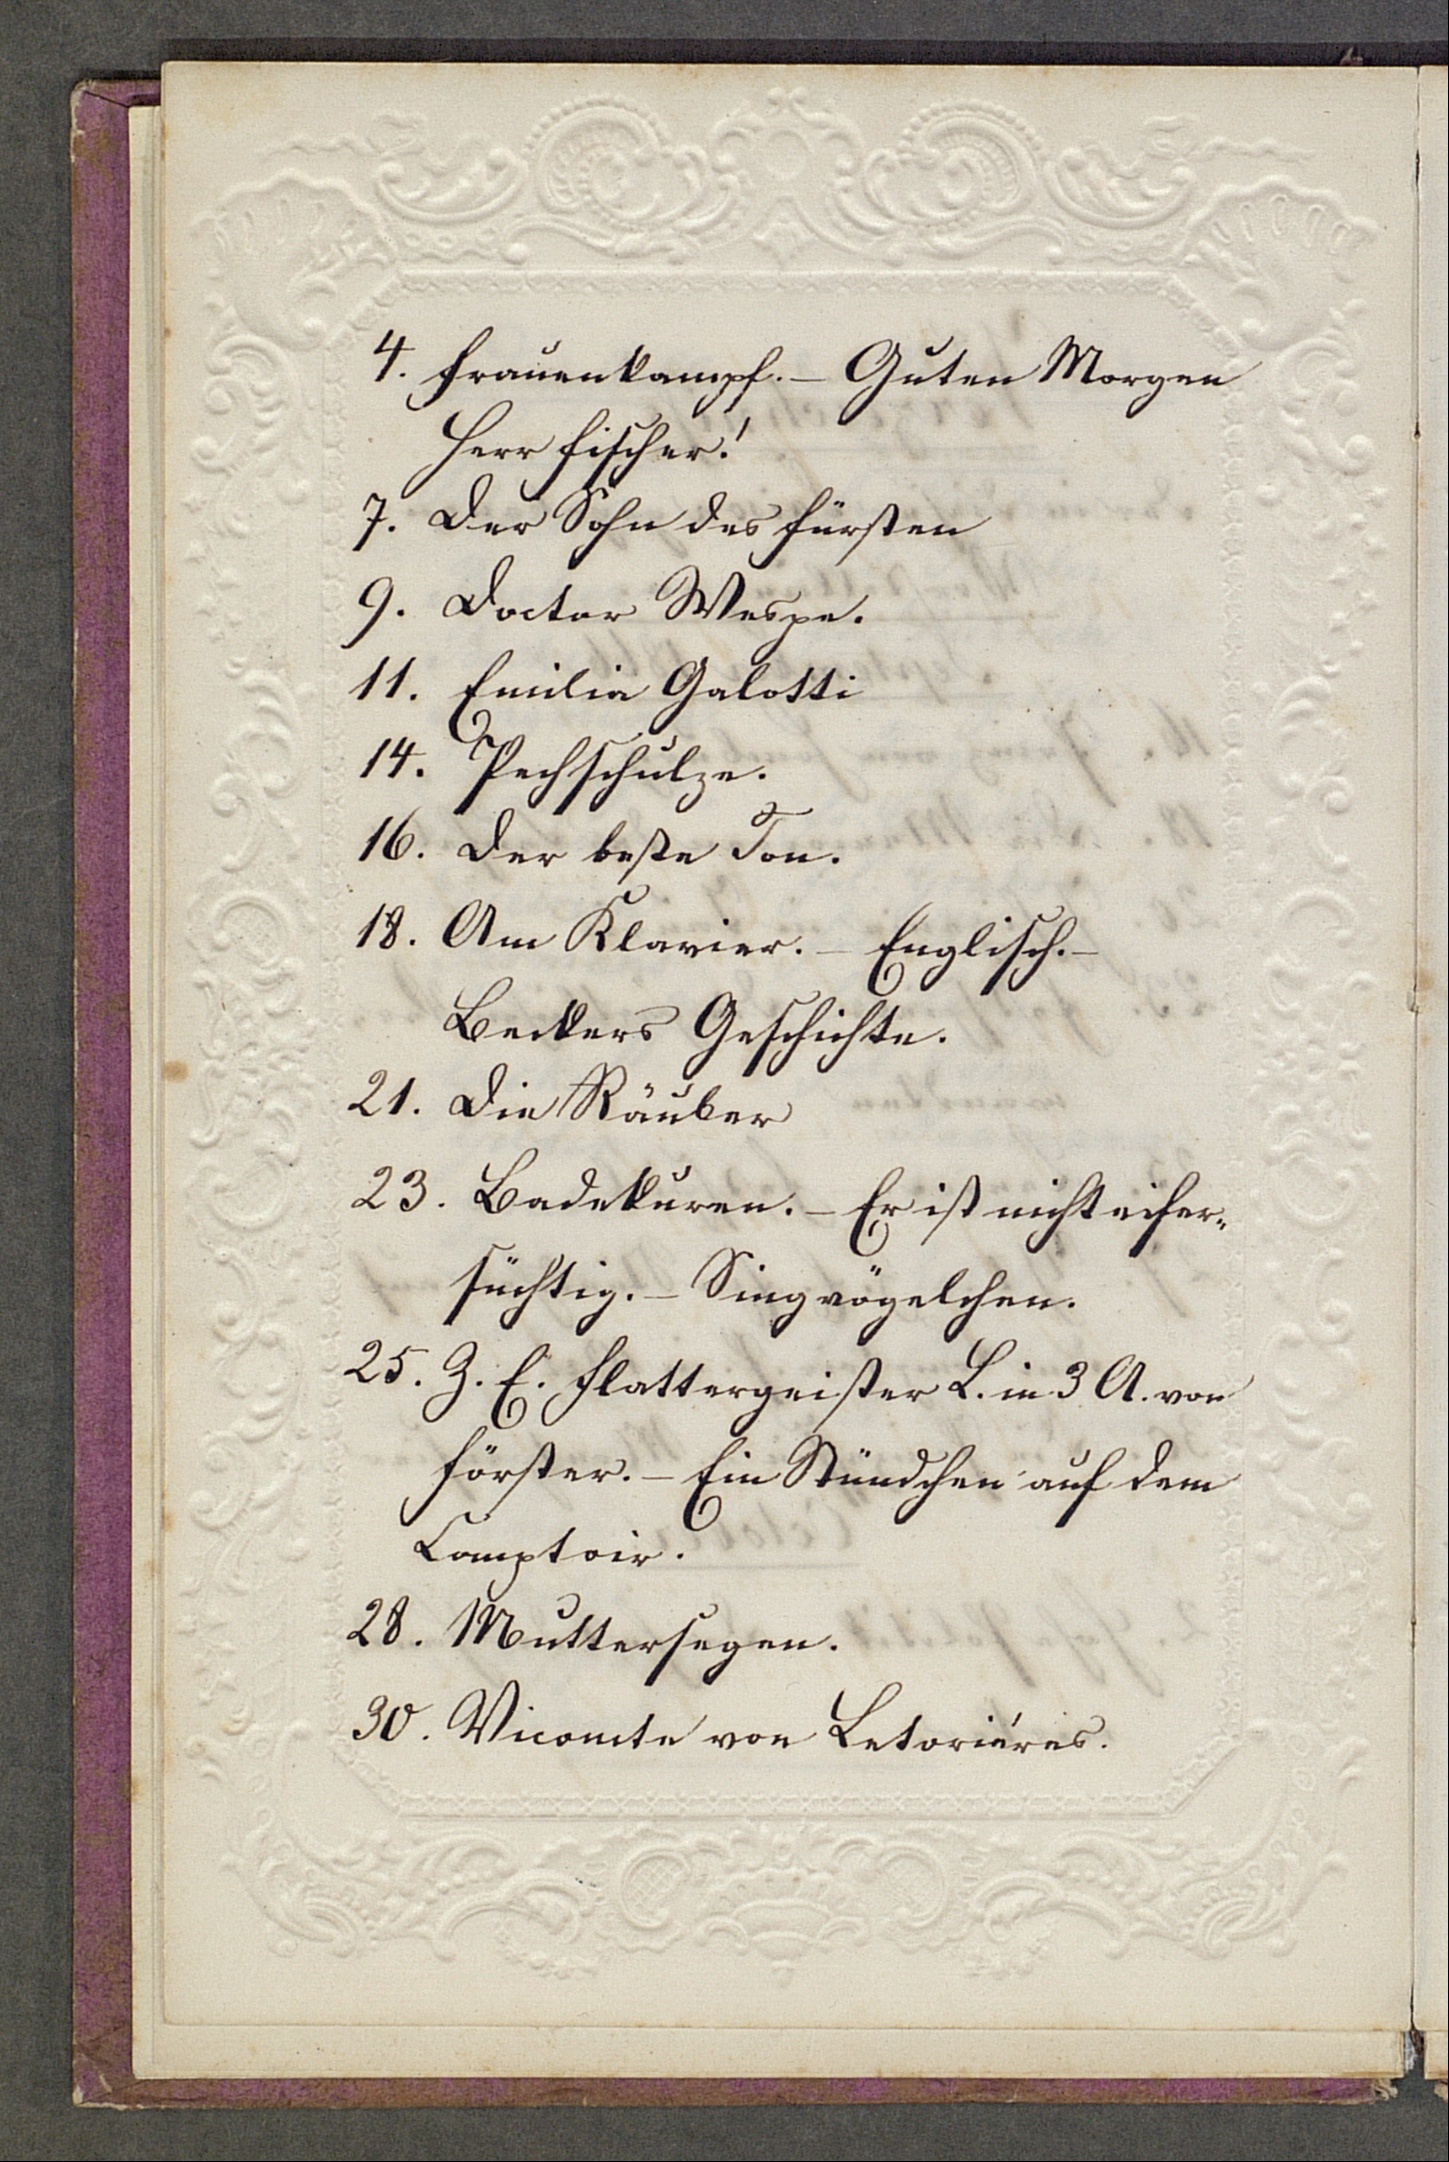 4. Frauenkampf. – Guten Morgen
Herr Fischer!
7. Der Sohn des Fürsten
9. Doctor Wespe.
11. Emilia Galotti
14. Pechschulze.
16. Der beste Ton.
18. Am Klavier. – Englisch. –
Beckers Geschichte.
21. Die Räuber
23. Badekuren. – Er ist nicht eifer-
süchtig. – Singvögelchen.
25. Z. E. Flattergeister L. in 3 A. von
Förster. – Ein Stündchen auf dem
Comptoir.
28. Muttersegen.
30. Vicomte von Letoriéres.